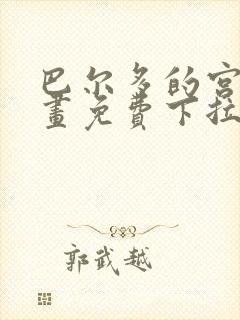 巴尔多的宫
画免费下拉
郭武越